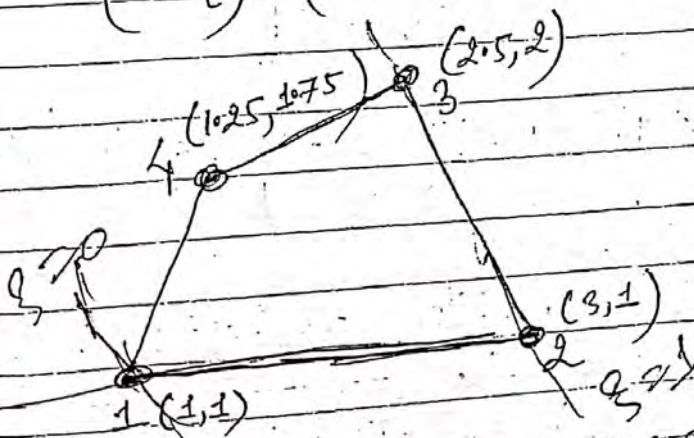 (2.5, 2)
3
(1.25, 1.75)
4
(3, 1)
2
1 (1, 1)